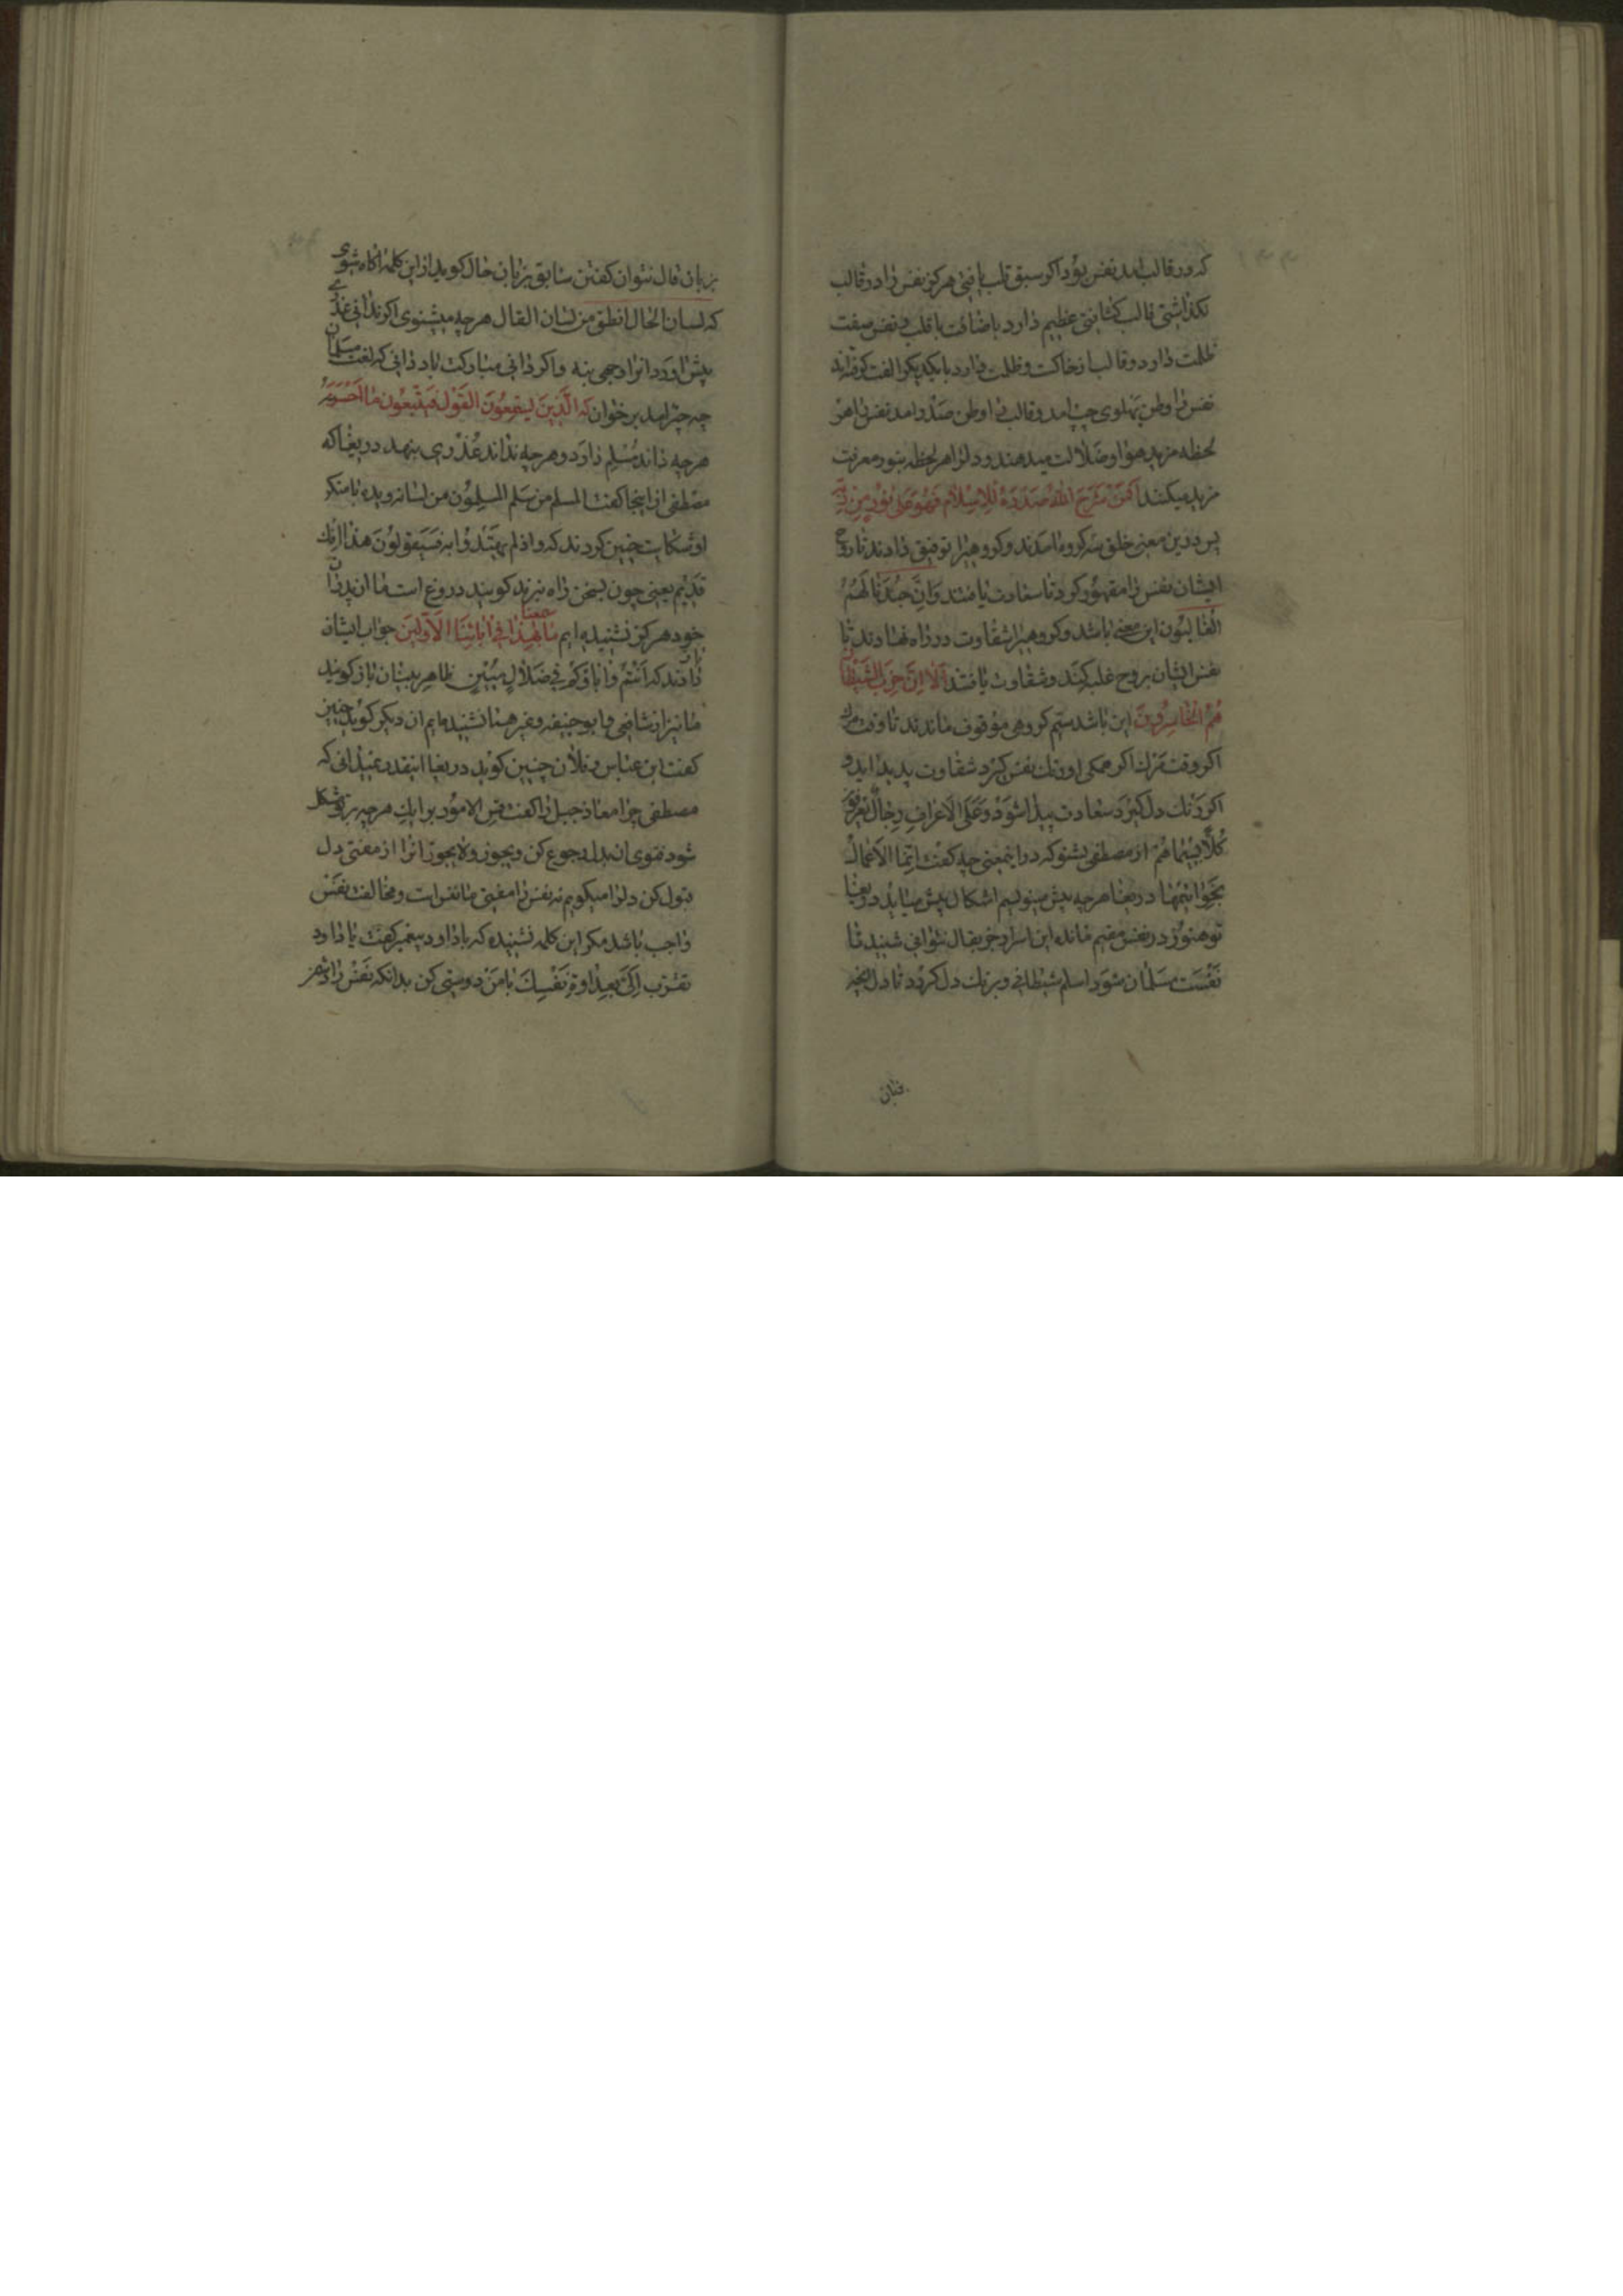 که در قالب امد نفس بود اگر سبق قلب یافتی هرگز نفس را در قالب
نگذاشتی قالب کثافتی عظیم دارد باضافت با قلب و نفس صفت
ظلمت دارد و قالب از خاکست و ظلمت دارد با یکدیگر الفت گرفته‌اند
نفس را وطن پهلوی چپ امد و قالب را وطن صدر امد نفس را هر
لحظه مزید هوا و ضلالت میدهند و دلرا هر لحظه بنور معرفت
مزید میکنند اَفَمَنْ شَرَحَ اللهُ صَدْرَهُ لِلاِسْلامِ فَهُوَ عَلی نُورٍ مِنْ رَبِّه
پس درین معنی خلق سه گروه امدند گروهیرا توفیق دادند تا روح
ایشان نفس را مقهور کرد تا سعادت یافتند وَاِنَّ جُنْدَنا لَهُمُ
الْغالبُون این معنی باشد و گروهیرا شقاوت در راه نهادند تا
نفس ایشان بر روح غلبه کند و شقاوت یافتند اَلا اِنَّ حِزْبَ الشَّیْطان
هُمُ الْخاسِرُون این باشد سیم گروهی موقوف ماندند تا وقت مرگ
اگر وقت مرگ اگر همگی او رنگ نفس گیرد شقاوت پدید اید و
اگر رنگ دل گیرد سعادت پیدا شود وَعَلَی الاَعْرافِ رِجالٌ یَعْرِفُونَ
کُلاًّ بِسیماهُمْ از مصطفی بشنو که در اینمعنی چه گفت اِنَّما الاَعْمالُ
بخَواتیمها دریغا هرچه بیش مینویسم اشکال بیش میاید دریغا
تو هنوز در نفس مقیم مانده این اسرار جز بقال نتوانی شنید تا
نَفْسَت مسلمان شود اسلم شیطانی و برنگ دل گردد تا دل انچه
بزبان
بزبان قال نتوان گفتن سابق بزبان حال گوید از این کلمه اگاه شوی
که لسان الحال انطق من لسان القال هرچه میشنوی اگر ندانی عذری
پیش اور و انرا وجهی بنه واگر دانی مبارکت باد دانی که لغت مسلمان
چه چیز امد برخوان که الَّذینَ یَسْتَمِعُونَ القَوْلَ فَیَتَّبِعُون ما اَحْسَنَه
هرچه داند مُسْلِم دارد و هرچه نداند عُذْری بنهد دریغا که
مصطفی از اینجا گفت المسلم من سَلم المسلِمُون من لسانه ویده با منکر
او شکایت چنین کردند که واذ لم یهتَدُوا به فَسَیَقولوُنَ هذا اِفك
قدیم یعنی چون بسخن راه نبرند گویند دروغ است ما از پدران
خود هرگز نشنیده‌ایم ما سمعنا بهذا فی ابائِنَا الاَوَّلینَ جواب ایشان
دادند که اَنْتُمْ وَاباؤکُمْ فی ضَلالٍ مُبینٍ ظاهر بینان باز گویند
ما نیز از شافعی و ابوحنیفه و غیرهما نشنیده‌ایم ان دیگر گوید چنین
گفت ابن عباس و فلان چنین گوید دریغا اینقدر نمیدانی که
مصطفی چرا معاذ جبل را گفت قس الامور برایك هرچه بر تو مشکل
شود فتوی ان بدل رجوع کن و یجوز ولا یجوز انرا از مفتی دل
قبول کن دلرا میگویم نه نفس را مفتی ما نفس است و مخالفت نفس
واجب باشد مگر این کلمه نشنیده که با داود پیغمبر گفت یا داود
تقرّب اِلَیَّ بِعَداوَةِ نَفْسِكَ با من دوستی کن بدانکه نفس را دشمن